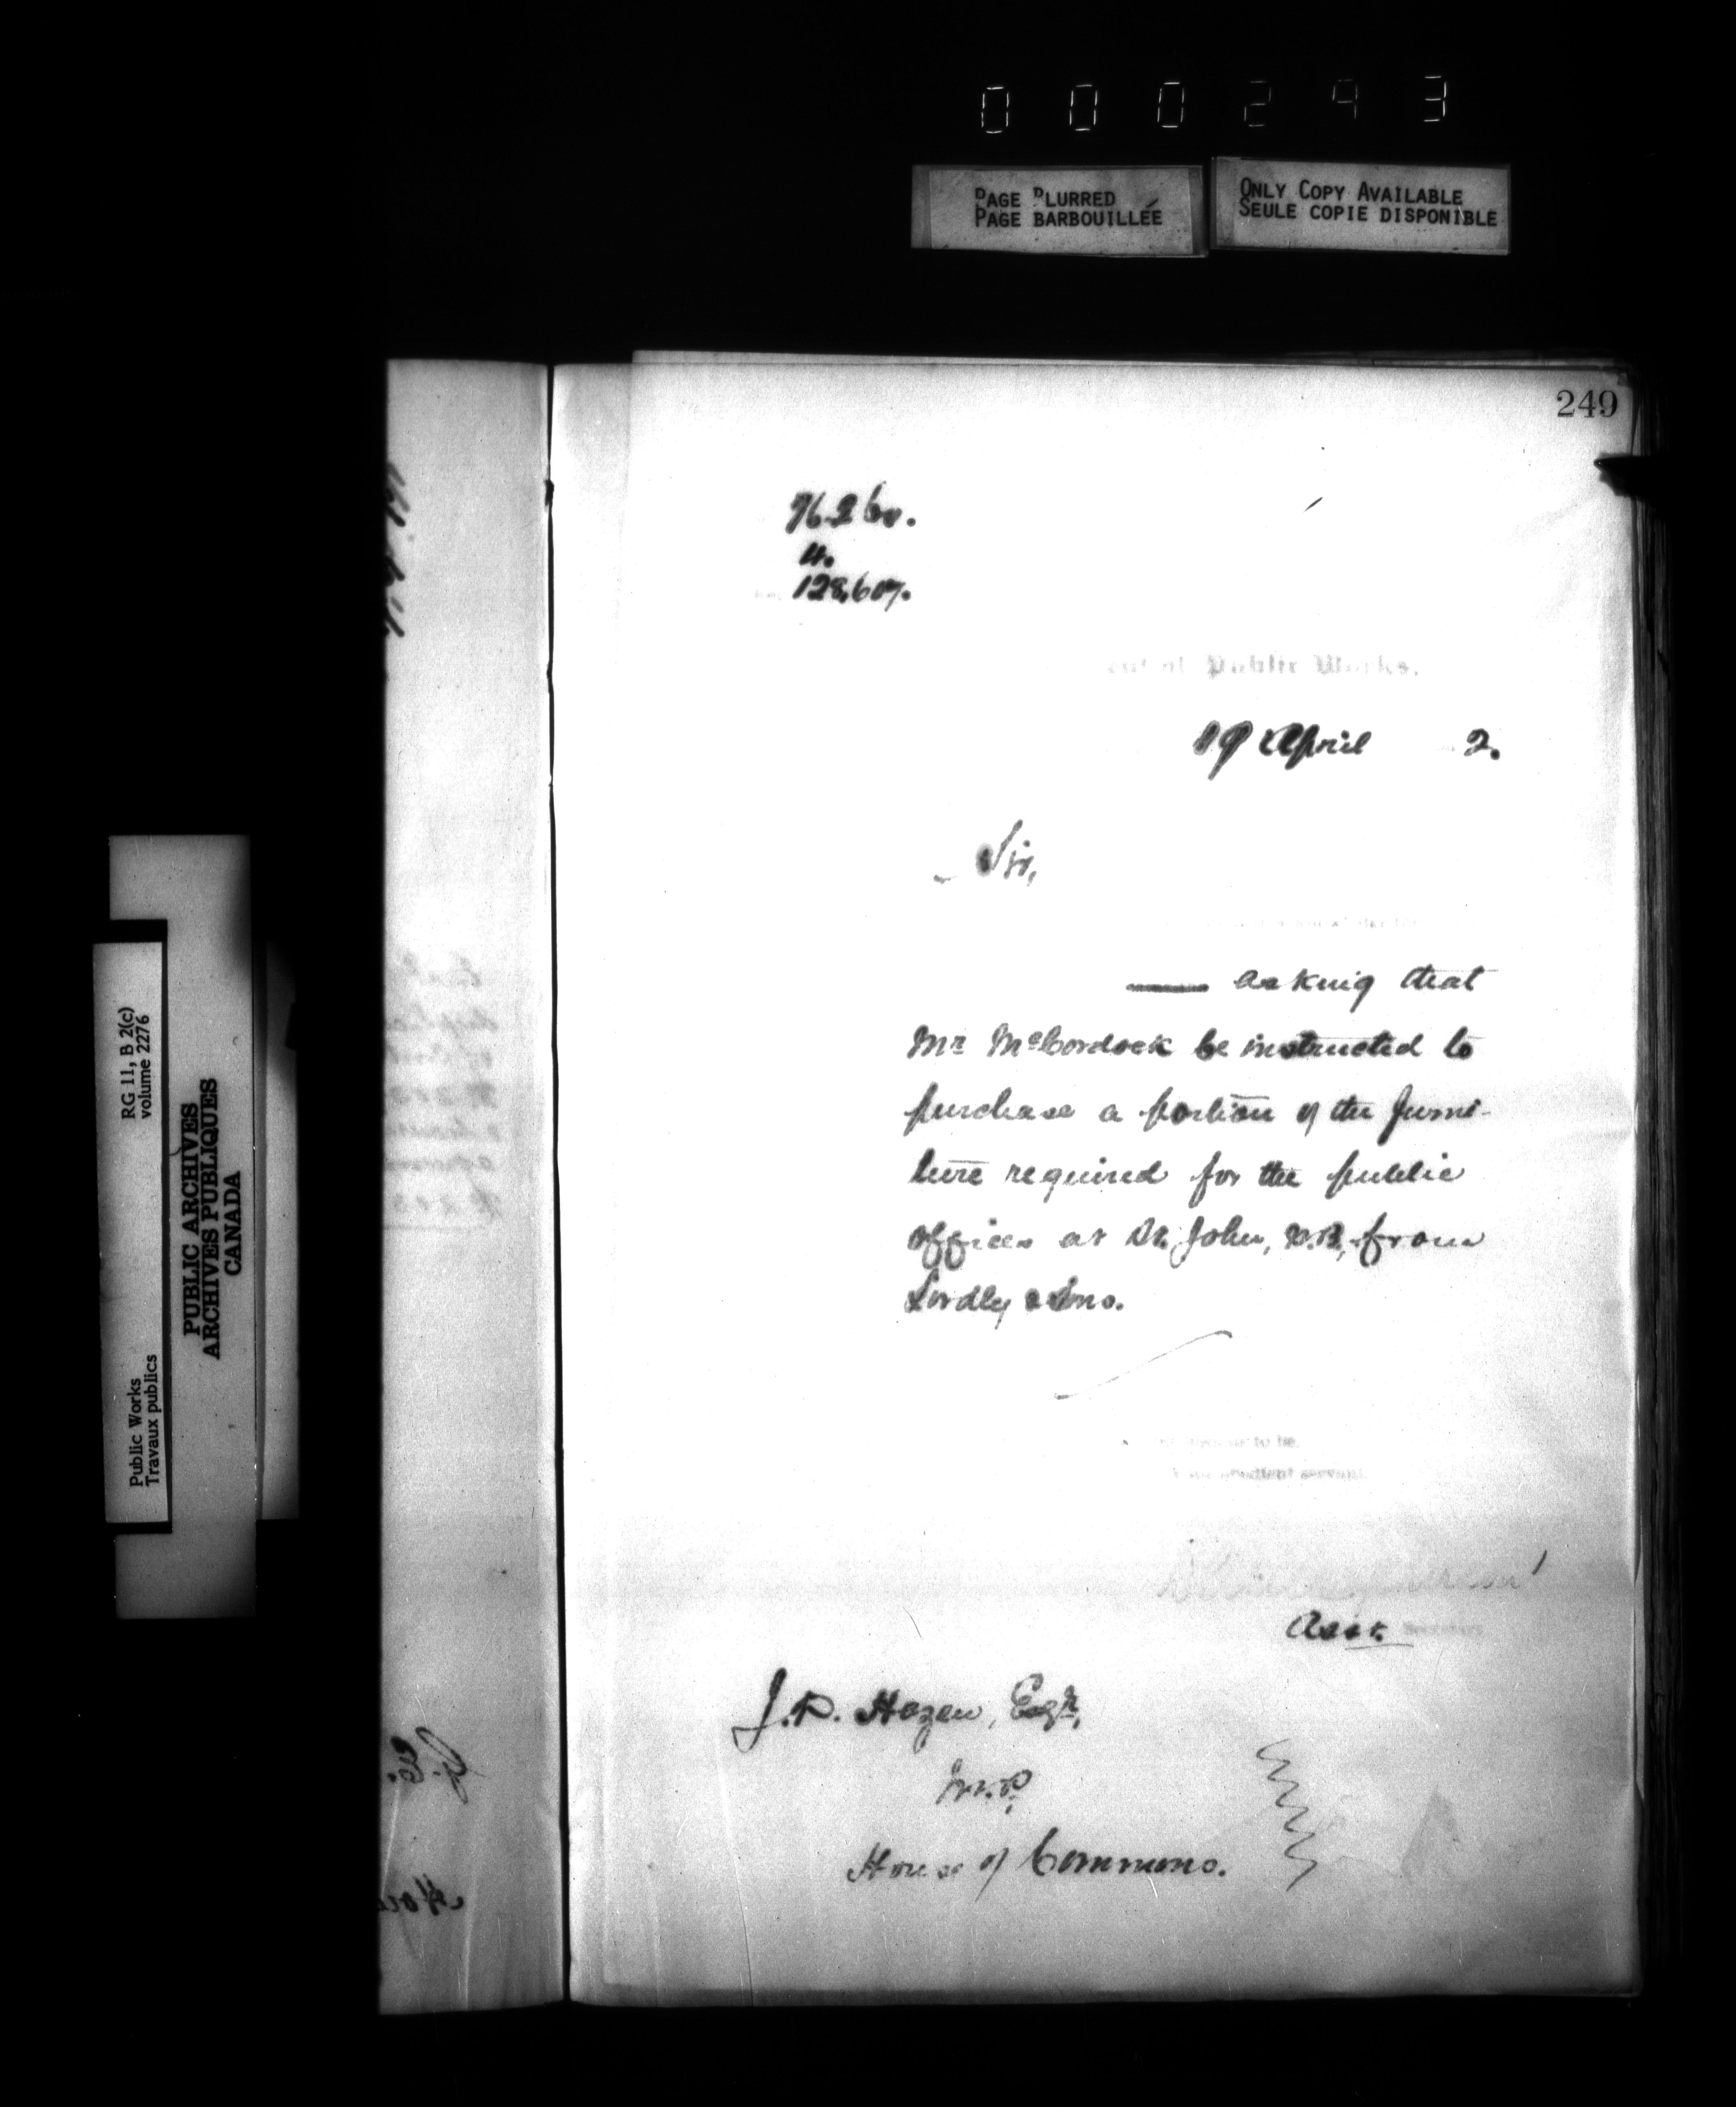 000293
PAGE BLURRED
PAGE BARBOUILLÉE
ONLY COPY AVAILABLE
SEULE COPIE DISPONIBLE
249
4.
128,607.
Public Works.
19 April 2.
Sir,
asking that
Mr McCordock be instructed to
purchase a portion of the furni-
ture required for the public
offices at St. John, N.B, from
Lordly & Sons.
to be,
obedient servant,
Asst. Secretary
J.D. Hazen, Esqr,
M.P.
House of Commons.
RG 11, B 2(c)
volume 2276
PUBLIC ARCHIVES
ARCHIVES PUBLIQUES
CANADA
Public Works
Travaux publics